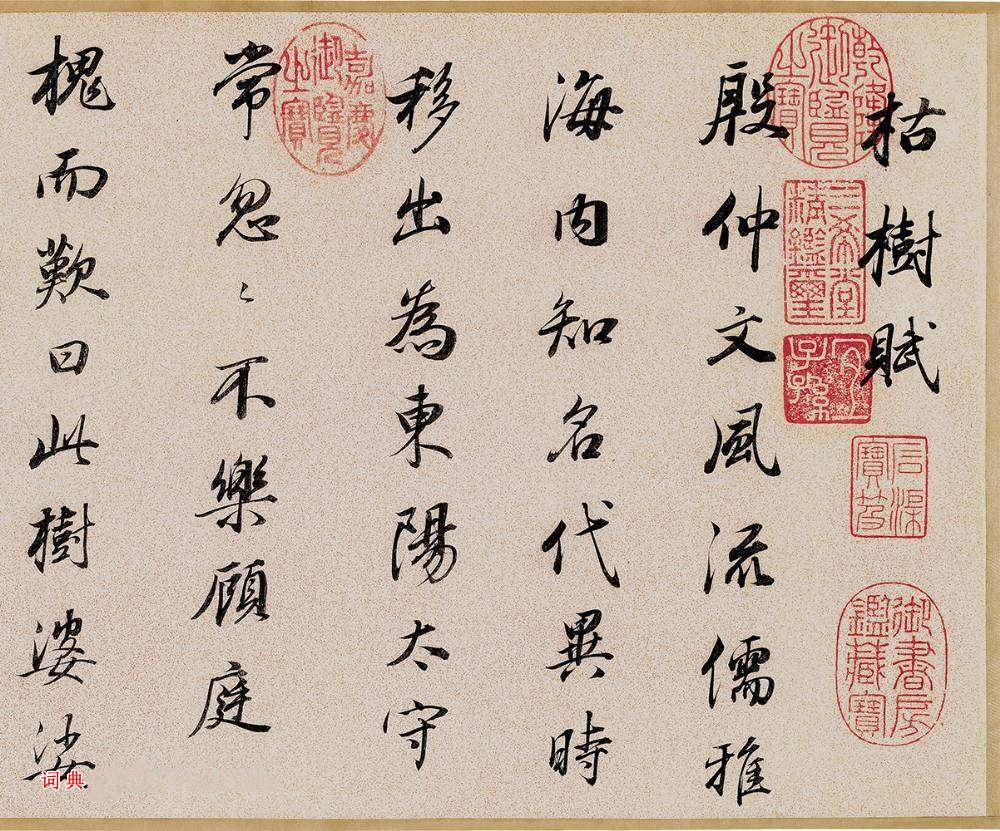 枯樹賦
殷仲文風流儒雅
海内知名代異時
移出為東陽太守
常忽忽不樂顧庭
槐而歎曰此樹婆娑
乾隆御覽之寶
三希堂精鑑璽
宜子孫
石渠寶笈
御書房鑑藏寶
嘉慶御覽之寶
词典